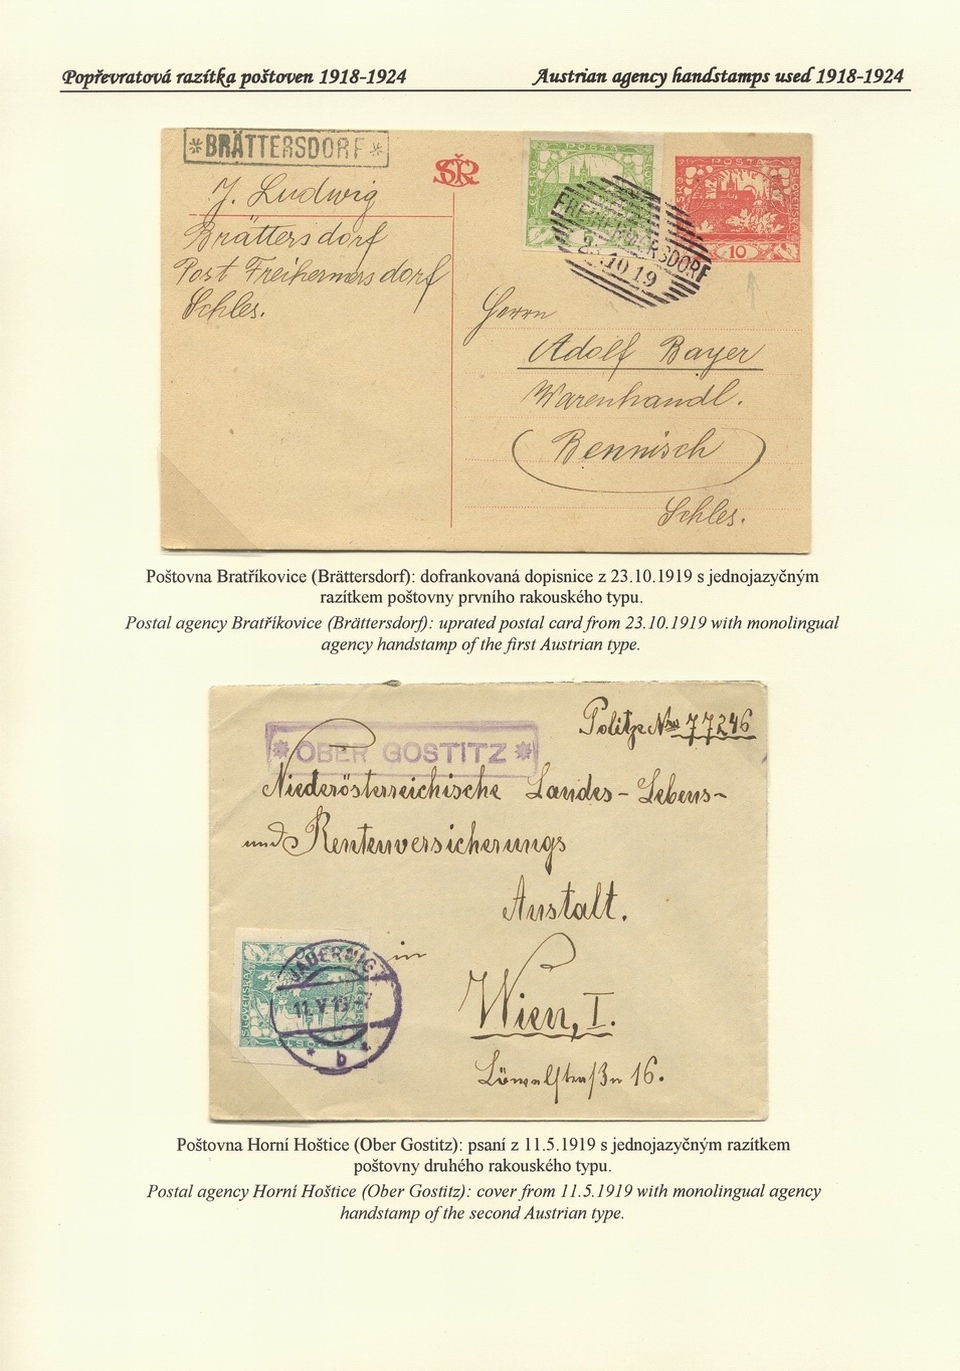 Popřevratová razítka poštoven 1918-1924
Austrian agency handstamps used 1918-1924
*BRÄTTERSDORF*
J. Ludwig
Brättersdorf
Post Freihermersdorf
Schles.
SČR
POSTA
ČESKO
POSTA
ČESKO SLOVENSKÁ
10
FREIHERMERSDORF
2.10 19
Herrn
Adolf Bayer
Warenhandl.
Bennisch
Schles.
Poštovna Bratříkovice (Brättersdorf): dofrankovaná dopisnice z 23.10.1919 s jednojazyčným
razítkem poštovny prvního rakouského typu.
Postal agency Bratříkovice (Brättersdorf): uprated postal card from 23.10.1919 with monolingual
agency handstamp of the first Austrian type.
Politze Nro 77246
* OBER GOSTITZ *
Niederösterreichische Landes-Lebens-
und Rentenversicherungs
Anstalt.
in
Wien, I.
Löwelstraße 16.
SLOVENSKÁ
JAUERNIG
11.V.19-7
* b *
Poštovna Horní Hoštice (Ober Gostitz): psaní z 11.5.1919 s jednojazyčným razítkem
poštovny druhého rakouského typu.
Postal agency Horní Hoštice (Ober Gostitz): cover from 11.5.1919 with monolingual agency
handstamp of the second Austrian type.